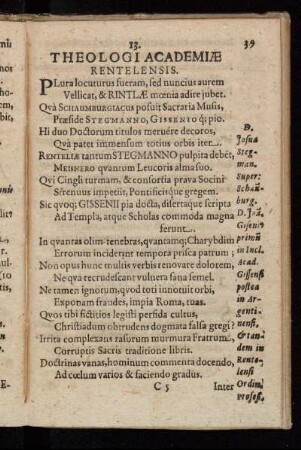 13.
39
THEOLOGI ACADEMIÆ
RENTELENSIS.
PLura locuturus fueram, sed nuncius aurem
Vellicat, & RINTLÆ mœnia adire jubet.
Quà SCHAUMBURGIACUS posuit Sacraria Musis,
Præside STEGMANNO, GISSENIO q́; pio.
Hi duo Doctorum titulos meruêre decoros,
Quà patet immensum totius orbis iter.
RENTELIÆ tantum STEGMANNO pulpita debêt,
MEISNERO quantum Leucoris alma suo.
Qui Cingli turmam, & consortia prava Socini
Strenuus impetiit, Pontificisque gregem.
Sic quoq; GISSENII pia docta, disertaque scripta
Ad Templa, atque Scholas commoda magna
ferunt.
In quantas olim tenebras, quantamq; Charybdim
Errorum inciderent tempora prisca patrum;
Non opus hunc multis verbis renovare dolorem,
Ne qua recrudescant vulnera sana semel.
Ne tamen ignorum, quod toti innotuit orbi,
Exponam fraudes, impia Roma, tuas.
Quos tibi fictitios legisti perfida cultus,
Christiadum obtrudens dogmata falsa gregi?
Irrita complexans rasorum murmura Fratrum,
Corruptis Sacris traditione libris.
Doctrinas vanas, hominum commenta docendo,
Ad cœlum varios & faciendo gradus.
C 5
Inter
D.
Josua
Steg-
man.
Super:
Schaũ-
burg.
D. Joã.
Giseniꝰ
primũ
in Incl.
Acad.
Gissensi
postea
in Ar-
genti-
nensi,
& tan-
dem in
Rente-
lensi
Ordin.
Profess.